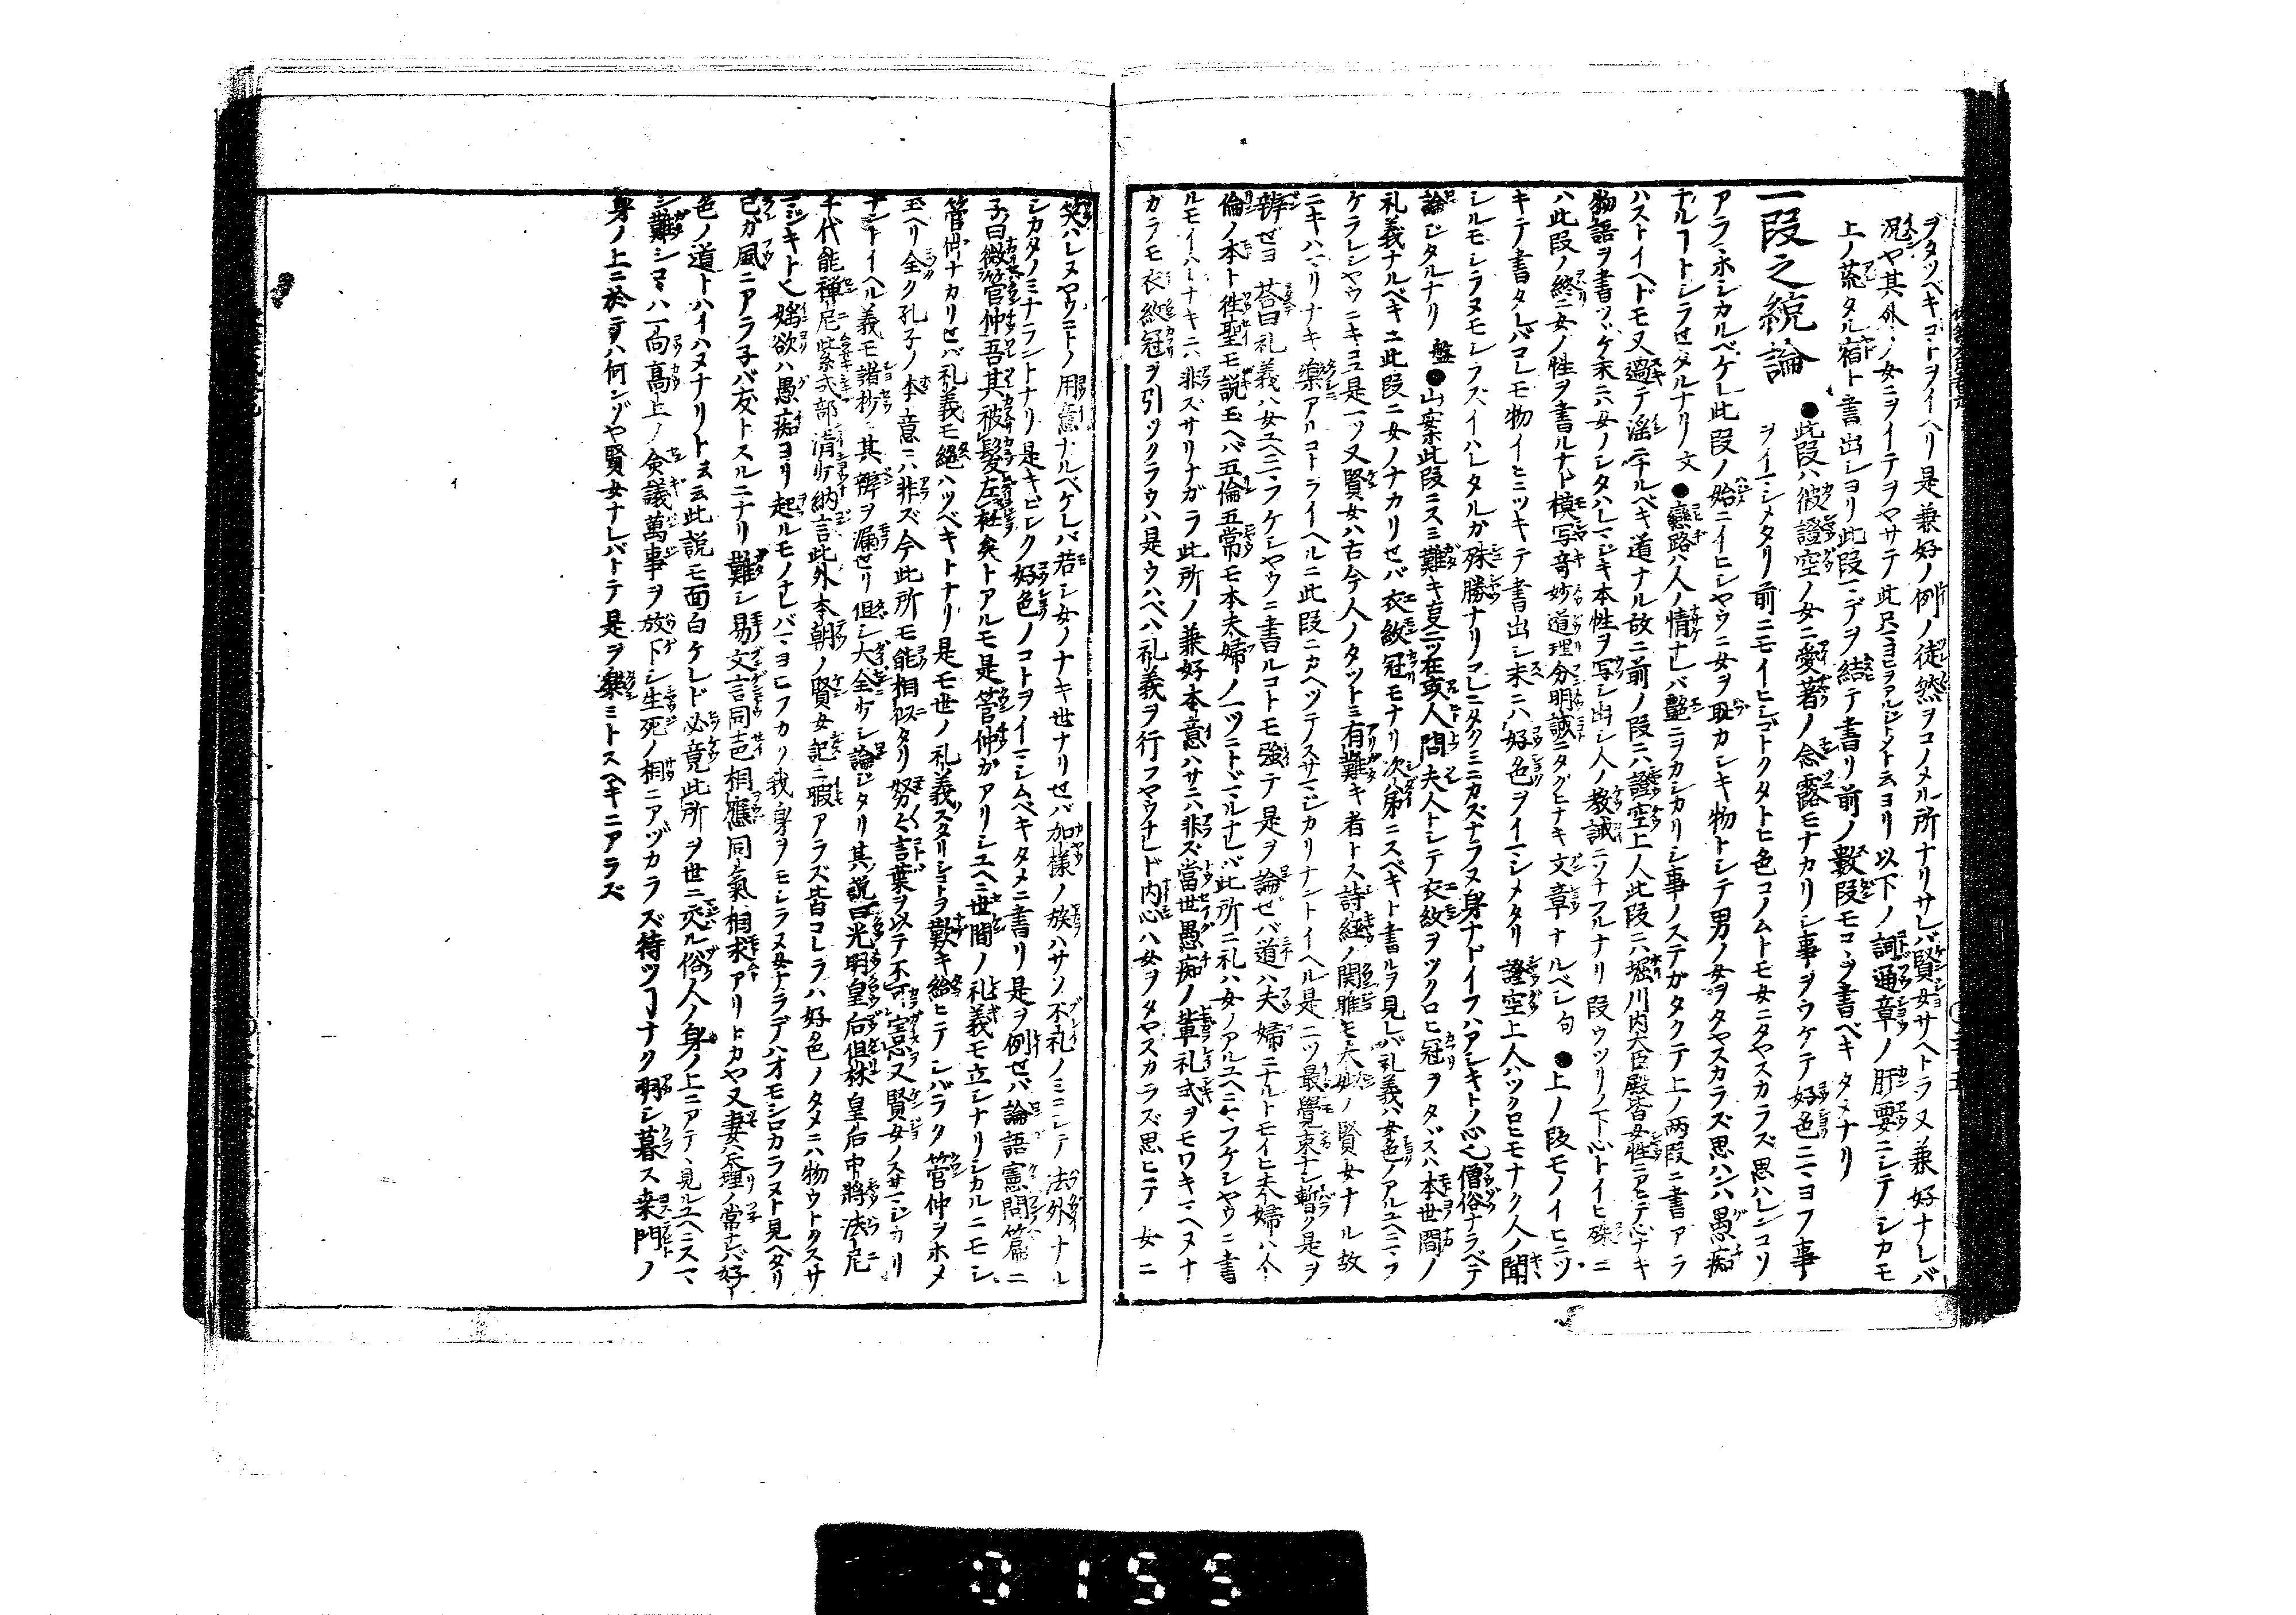 ヲタツベキコトヲイヘリ是兼好ノ例ノ徒然ヲコノメル所ナリサレバ賢女サヘトラヌ兼好ナレバ
況ヤ其外ノ女ニヲイテヲヤサテ此尺ヨヒヲアルジトメト云ヨリ以下ノ詞通章ノ肝要ニシテシカモ
上ノ荒タル宿ト書出シヨリ此段マデヲ結テ書リ前ノ數段モコヽヲ書ベキタメナリ
一段之統論
●此段ハ彼證空ノ女ニ愛著ノ念露モナカリシ事ヲウケテ好色ニマヨフ事
ヲイマシメタリ前ニモイヒシゴトクタトヒ色コノムトモ女ニタヤスカラズ思ハレンコソ
アラマホシカルベケレ此段ノ始ニイヒシヤウニ女ヲ恥カシキ物トシテ男ノ女ヲタヤスカラズ思ハンハ愚痴
ナルヿトシラセタルナリ文●戀路ハ人ノ情ナレバ艶ニヲカシカリシ事ノステガタクテ上ノ両段ニ書アラ
ハストイヘドモ又過テ淫ニナルベキ道ナル故ニ前ノ段ニハ證空上人此段ニハ堀川内大臣殿皆女性ニアヒテ心ナキ
物語ヲ書ツヾケ末ニハ女ノシタハレマジキ本性ヲ写シ出シ人ノ教誡ニソナフルナリ段ウツリノ下心トイヒ殊ニ
ハ此段ノ終ニ女ノ性ヲ書ルナド模写奇妙道理分明誠ニタグヒナキ文章ナルベシ句●上ノ段モノイヒニツ
キテ書タレバコレモ物イヒニツキテ書出シ末ニハ好色ヲイマシメタリ證空上人ハツクロヒモナク人ノ聞
シルモシラヌモシラズイハレタルガ殊勝ナリコレニタクミニカズナラヌ身ナドイフハアシキトノ心也僧俗ナラベテ
論ジタルナリ　盤●山案此段ニスミ難キ㕝二ツ在或人問夫人トシテ衣紋ヲツクロヒ冠ヲタヾスハ本世間ノ
礼義ナルベキニ此段ニ女ノナカリセバ衣紋冠モナリ次第ニスベキト書ルヲ見レバ礼義ハ女色ノアルユヘニマフ
ケラレシヤウニキコユ是一ツ又賢女ハ古今人ノタツトミ有難キ者トス詩経ノ関雎モ太姒ノ賢女ナル故
ニキハマリナキ樂アルコトライヘルニ此段ニカヘツテスサマジカリナントイヘル是二ツ最覺束ナシ暫ク是ヲ
辨ぜヨ　荅曰礼義ハ女ユヘニマフケシヤウニ書ルコトモ強テ是ヲ論ゼバ道ハ夫婦ニナルトモイヒ夫婦ハ人
倫ノ本ト徃聖モ説玉ヘバ五倫五常モ本夫婦ノ一ツニトヾマルナレバ此所ニ礼ハ女ノアルユヘニマフケシヤウニ書
ルモイハレナキニハ非ズサリナガラ此所ノ兼好本意ハサニハ非ズ當世愚痴ノ輩礼式ヲモワキマヘヌナ
ガラモ衣紋冠ヲ引ツクラウハ是ウハベハ礼義ヲ行フヤウナレド内心ハ女ヲタヤスカラズ思ヒテ女ニ
笑ハレヌヤウニトノ用意ナルベケレバ若シ女ノナキ世ナリセバ加様ノ族ハサゾ不礼ノミニシテ法外ナル
シカタノミナラントナリ是キビシク好色ノコトヲイマシムベキタメニ書リ是ヲ例セバ論語憲問篇ニ
子曰微管仲吾其被髪左衽矣トアルモ是管仲ガアリシユヘニ世間ノ礼義モ立シナリシカルニモシ
管仲ナカリセバ礼義モ絶ハツベキトナリ是モ世ノ礼義スタリシコトヲ歎キ給ヒテシバラク管仲ヲホメ
玉ヘリ全ク孔子ノ本意ニハ非ズ今此所モ能相似タリ努々言葉ヲ以テ不可害意又賢女ノスサマジカリ
ナントイヘル義モ諸抄ニ其辨ヲ漏せリ但シ大全ケシ論ジタリ其ノ説曰光明皇后但林皇后中将法尼
千代能禅尼紫式部清少納言此外本朝ノ賢女記ニ暇アラズ皆コレラハ好色ノタメニハ物ウトクスサ
マジキト也婬欲ハ愚痴ヨリ起ルモノナレバマヨヒフカク我身ヲモシラヌ女ナラデハオモシロカラヌト見ヘタリ
己ガ風ニアラ子バ友トスルニナリ難シ易文言同聲相應同氣相求アリトカヤ又妻ハ天理ノ常ナレバ好
色ノ道トハイハヌナリト云云此説モ面白ケレド必竟此所ヲ世ニ交ル俗人ノ身ノ上ニアテヽ見ルユヘニスマ
シ難シコヽハ一向高上ノ僉議萬事ヲ放下シ生死ノ相ニアヅカラズ待ツヿナク明シ暮ス桒門ノ
身ノ上ニ於テハ何ンゾヤ賢女ナレバトテ是ヲ樂ミトスヘキニアラズ
0155